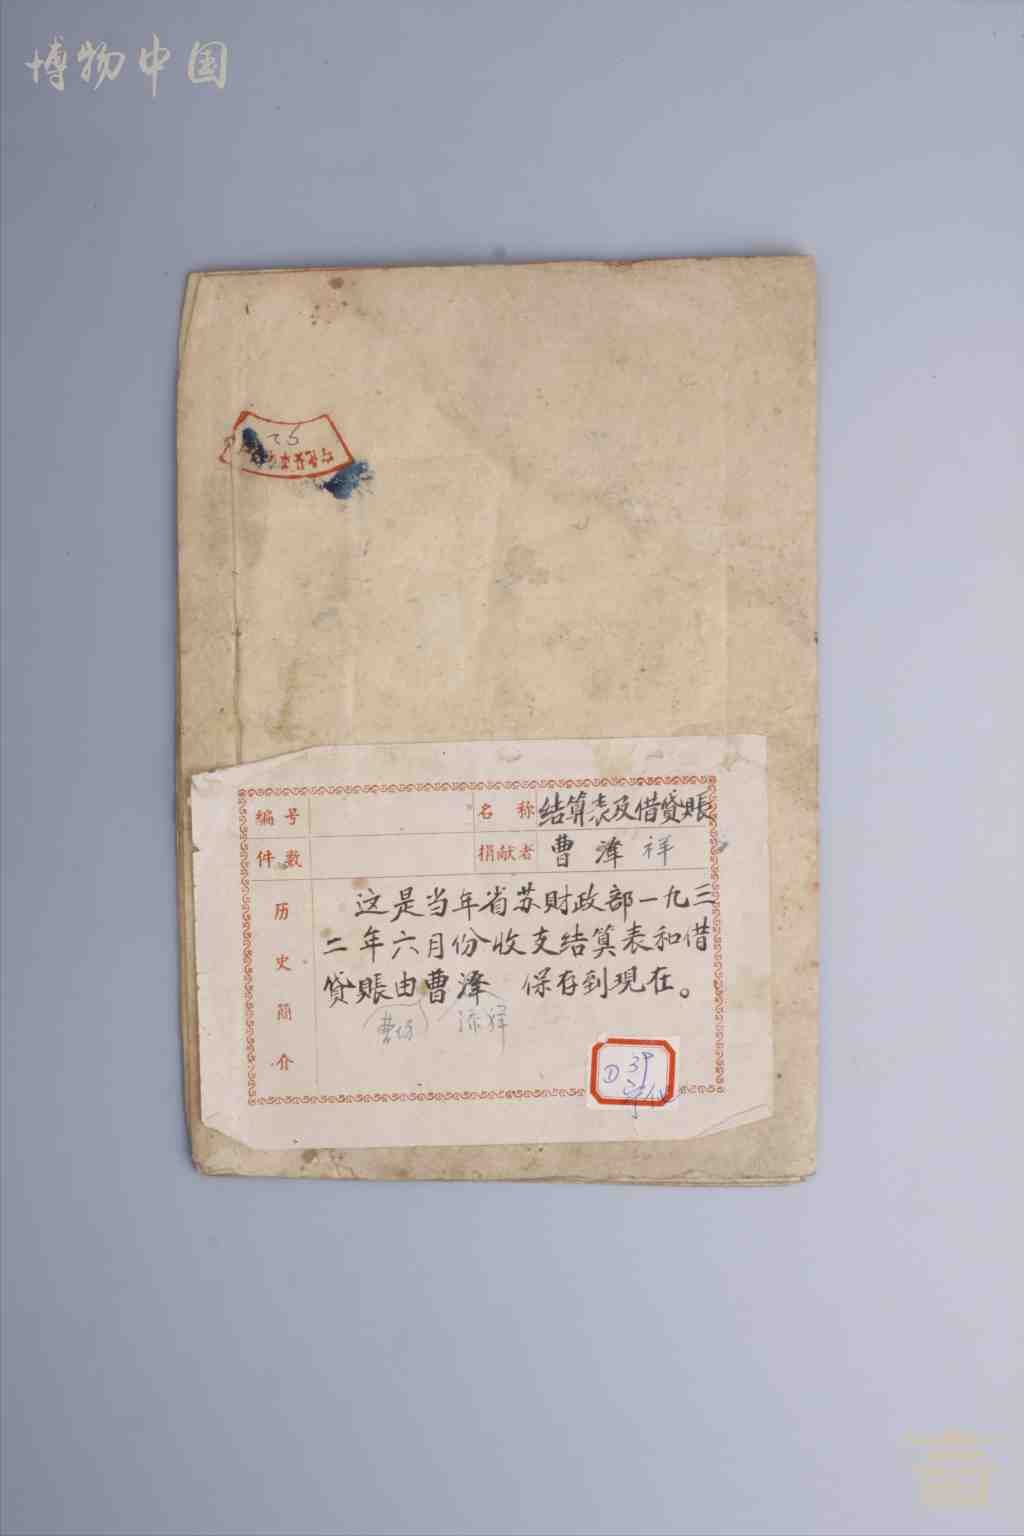 博物中国
编号
名称 结算表及借贷账
件数
捐献者 曹泽祥
历史简介
这是当年省苏财政部一九三
二年六月份收支结算表和借
贷账由曹泽 保存到现在。
D 39